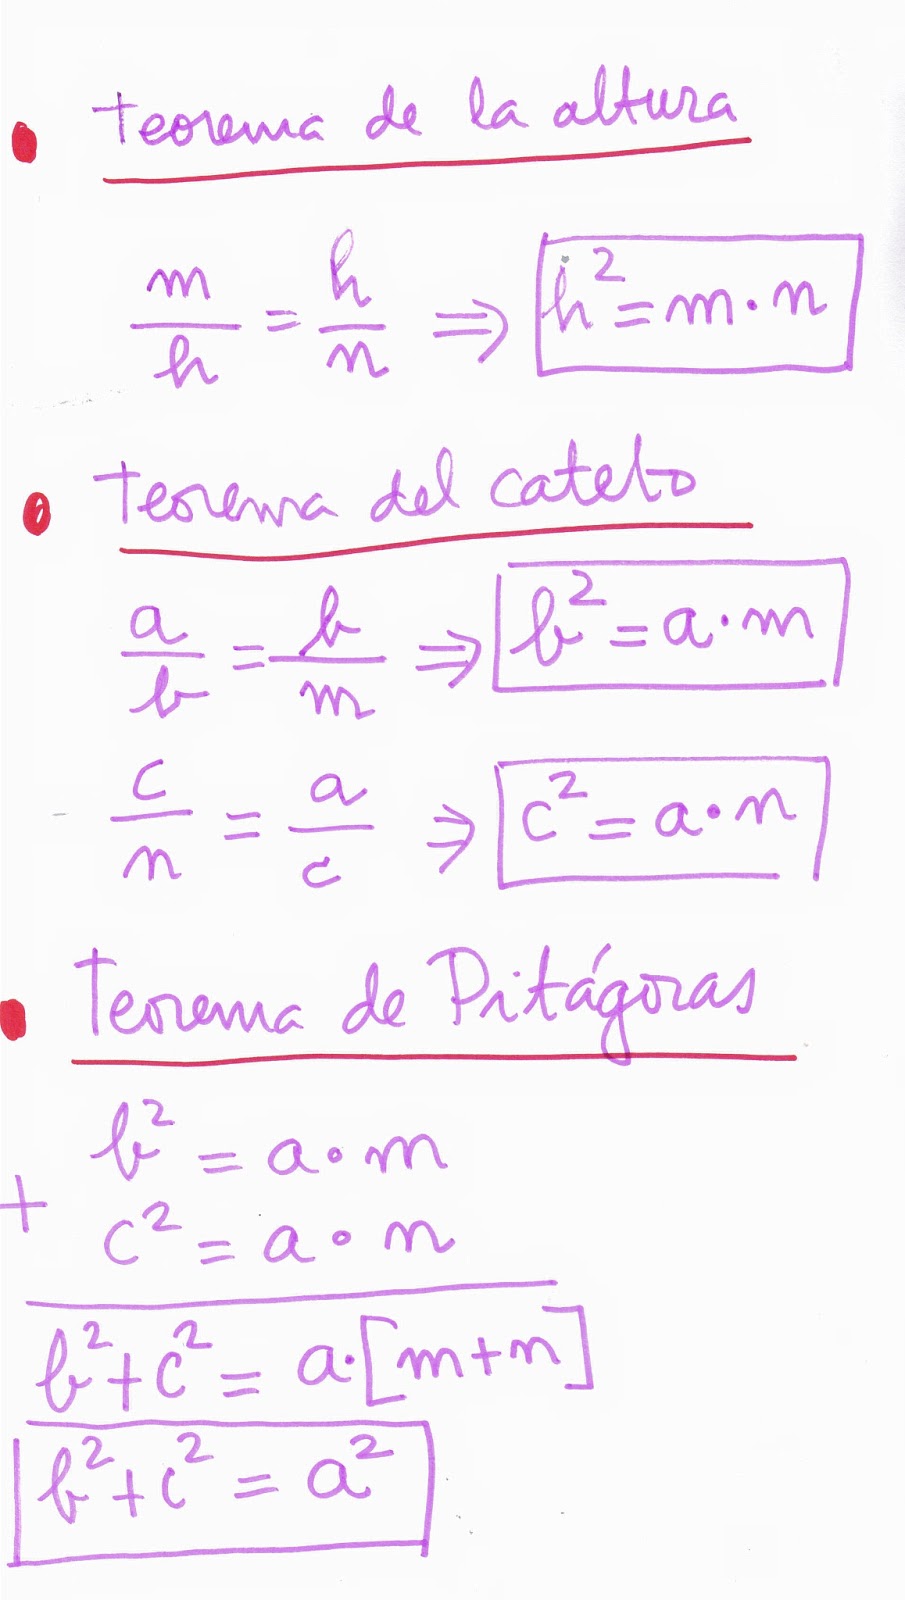 • Teorema de la altura
m/h = h/n ⇒ h² = m · n
• Teorema del cateto
a/b = b/m ⇒ b² = a · m
c/n = a/c ⇒ c² = a · n
• Teorema de Pitágoras
b² = a · m
+ c² = a · n
b² + c² = a · [m + n]
b² + c² = a²